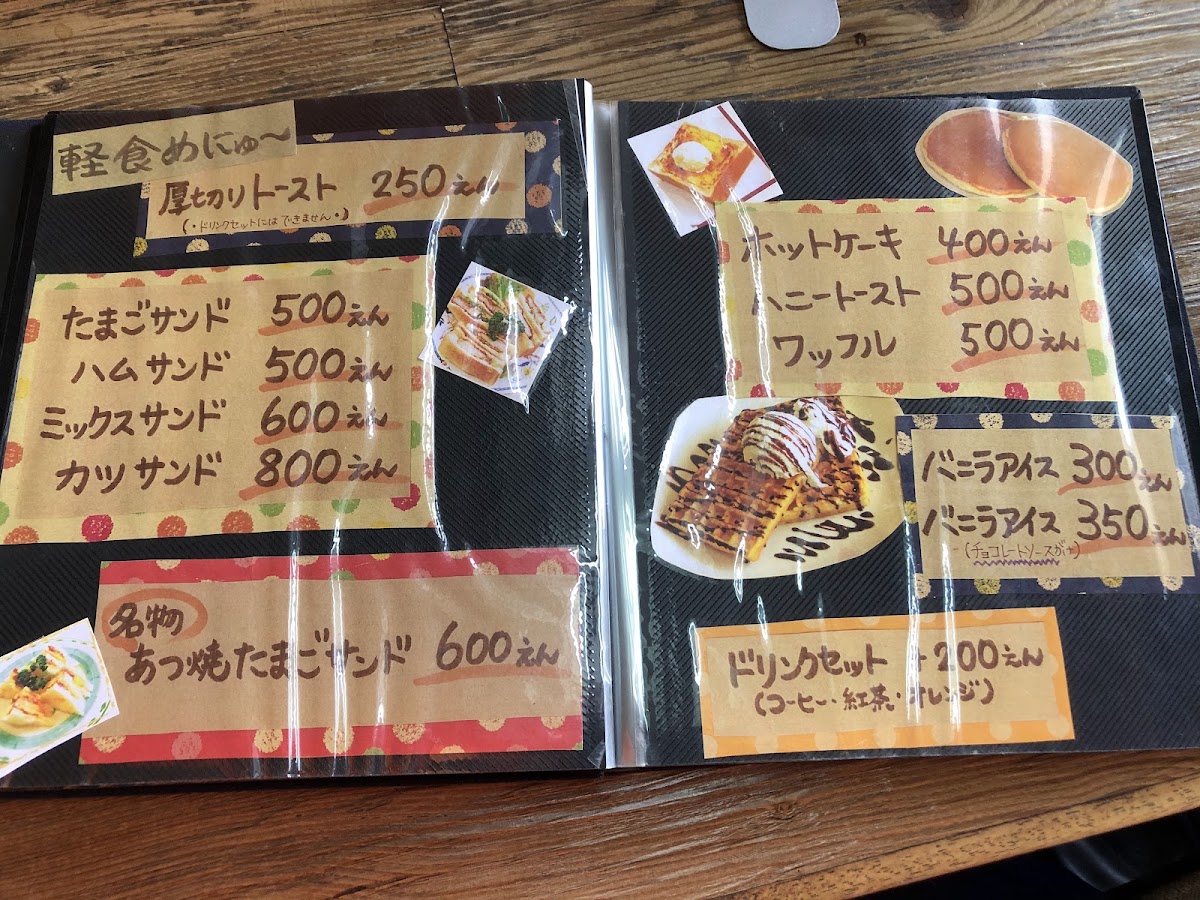 軽食めにゅ〜
厚切りトースト 250えん
(・ドリンクセットにはできません・)
たまごサンド 500えん
ハムサンド 500えん
ミックスサンド 600えん
カツサンド 800えん
名物
あつ焼たまごサンド 600えん
ホットケーキ 400えん
ハニートースト 500えん
ワッフル 500えん
バニラアイス 300えん
バニラアイス 350えん
(チョコレートソースがけ)
ドリンクセット +200えん
(コーヒー・紅茶・オレンジ)